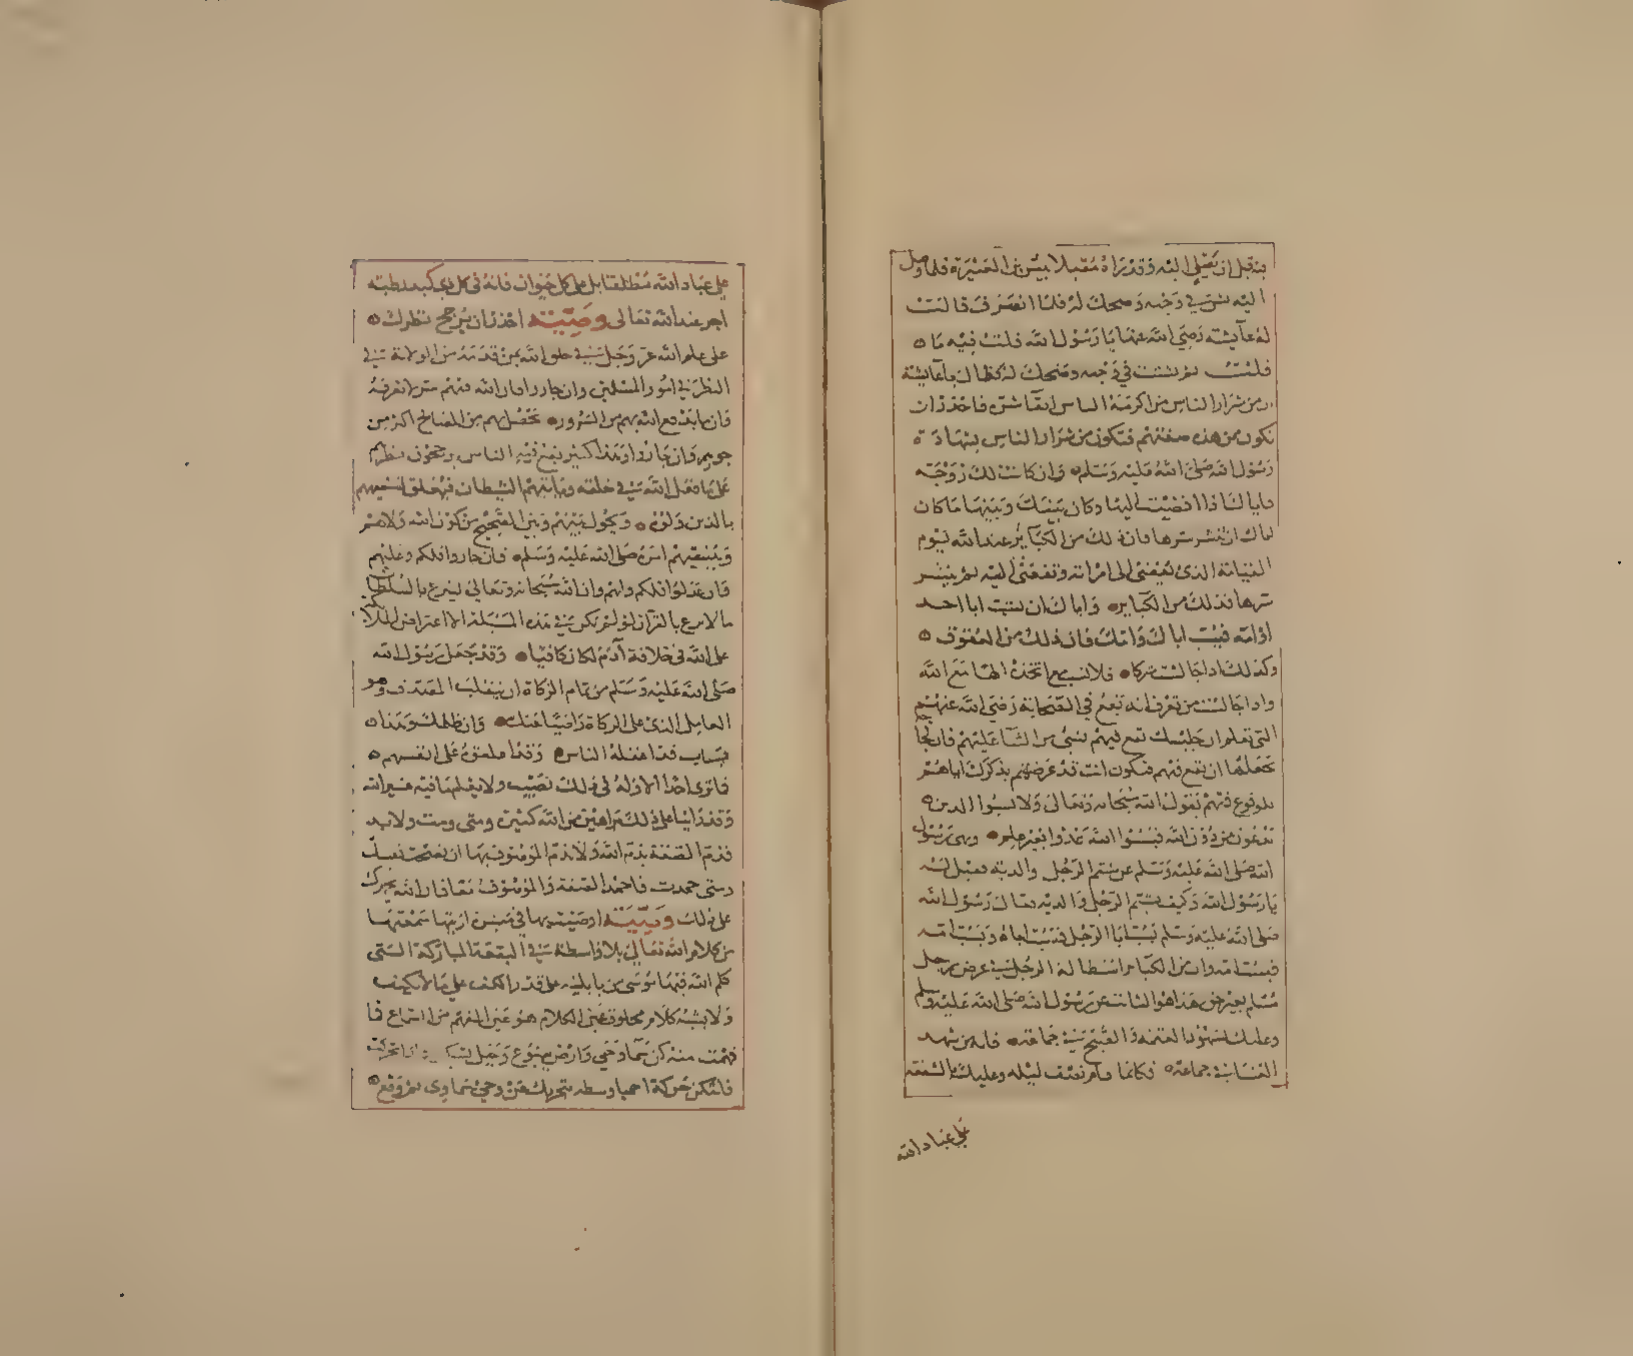 من قبل ان يصل اليه وقد رآه مقبلا بيس بن العشيرة فلما وصل
اليه بش في وجهه وضحك له فلما انصرف قالت
له عآيشة رضي الله عنها يا رسول الله قلت فيه ما
قلت ثم بششت في وجهه وضحكت له فقال يا عآيشة
ان من شرار الناس من اكرمه الناس اتقا شره فاحذر ان
تكون من هذه صفتهم فتكون من شرار الناس بشهادة
رسول الله صلى الله عليه وسلم وان كانت لك زوجة
فاياك اذا افضيت اليها وكان بينك وبينها ما كان
اياك ان تنشر سرها فان ذلك من الكبآير عند الله يوم
القيامة الذي يفضي الى امراته وتفضي اليه ثم ينشر
سرها فذلك من الكبآير واياك ان تسب ابا احد
او امه فيسب اباك وامك فان ذلك من العقوق
وكذلك اذا جالست مشركا فلا تسب من اتخذ الها مع الله
واذا جالست من تعرف انه يقع في الصحابة رضي الله عنهم
التي تعلم ان جليسك يقع فيهم بشي من الثنآ عليهم فان
يجعله ان يقع فيهم فتكون انت قد عرضتهم بذكرك اياهم
للوقوع فيهم يقول الله سبحانه وتعالى ولا تسبوا الذين
تدعون من دون الله فيسبوا الله عدوا بغير علم ونهى رسول
الله صلى الله عليه وسلم عن شتم الرجل والديه فقيل له
يا رسول الله وكيف يشتم الرجل والديه فقال رسول الله
صلى الله عليه وسلم يسب ابا الرجل فيسب اباه ويسب امه
فيسب امه وان من الكبآير استطالة الرجل في عرض رجل
مسلم بغير حق هذا هو الثابت عن رسول الله صلى الله عليه وسلم
وعليك بشهود العتمة والصبح في جماعة فانه من شهد
العشا في جماعة فكانما قام نصف ليله وعليك بالشفقة
على عباد الله
على عباد الله مطلقا بل على كل حيوان فانه في كل ذي كبد رطبة
اجر عند الله تعالى وصية احذر ان ترجح نظرك
على علم الله عز وجل في خلق الله بمن قدمه من الولاة في
النظر في امور المسلمين وان جاروا فان لله فيهم سرا لا تعرفه
وان ما يدفع الله بهم من الشرور وتحصل بهم من المصالح اكثر من
جورهم وان جاروا وهذا كثير يقع فيه الناس يرجحون نظرهم
على ما فعل الله في خلقه ويآتيهم الشيطان فيعلق تسفيههم
بالذين ولوه ويحول بينهم وبين الصحيح من كون الله ولاهم
وينسيهم امره صلى الله عليه وسلم فان جاروا فلكم وعليهم
وان عدلوا فلكم ولهم وان الله سبحانه وتعالى ليزع بالسلطان
ما لا يزع بالقرآن لو لم يكن في هذه المسئلة الا اعتراض الملا
على الله في خلافة آدم لكان كافيا وقد جعل رسول الله
صلى الله عليه وسلم من تمام الزكاة ان ينقلب المصدق وهو
العامل الذي على الزكاة راضيا عنك وان ظلمك وهذا
باب قد اغفله الناس وقد اغلقوه على انفسهم
فما ترى احدا الا وله في ذلك نصيب ولا يعلم ما فيه غير الله
وقد راينا على ذلك براهين من الله كثيرة ومتى ذممت ولا بد
فذم الصفة بذم الله ولا تذم الموصوف بها ان نصحت نفسك
ومتى حمدت فاحمد الصفة والموصوف معا فان الله يحمدك
على ذلك وصية اوصيت بها في مبشرة اريتها سمعتها
من كلام الله تعالى بلا واسطة في البقعة المباركة التي
كلم الله فيها موسى من با بلية على قدر الكف على ما لا يكيف
ولا يشبه كلام مخلوق عين الكلام هو عين الفهم من السامع فما
فهمت منه كن سمآ وحي وارض ينبوع وجبل تسكين فاذا تحركت
فلتكن حركة احيا وسطه بتحريك عن وحي سماوي ثم وقع